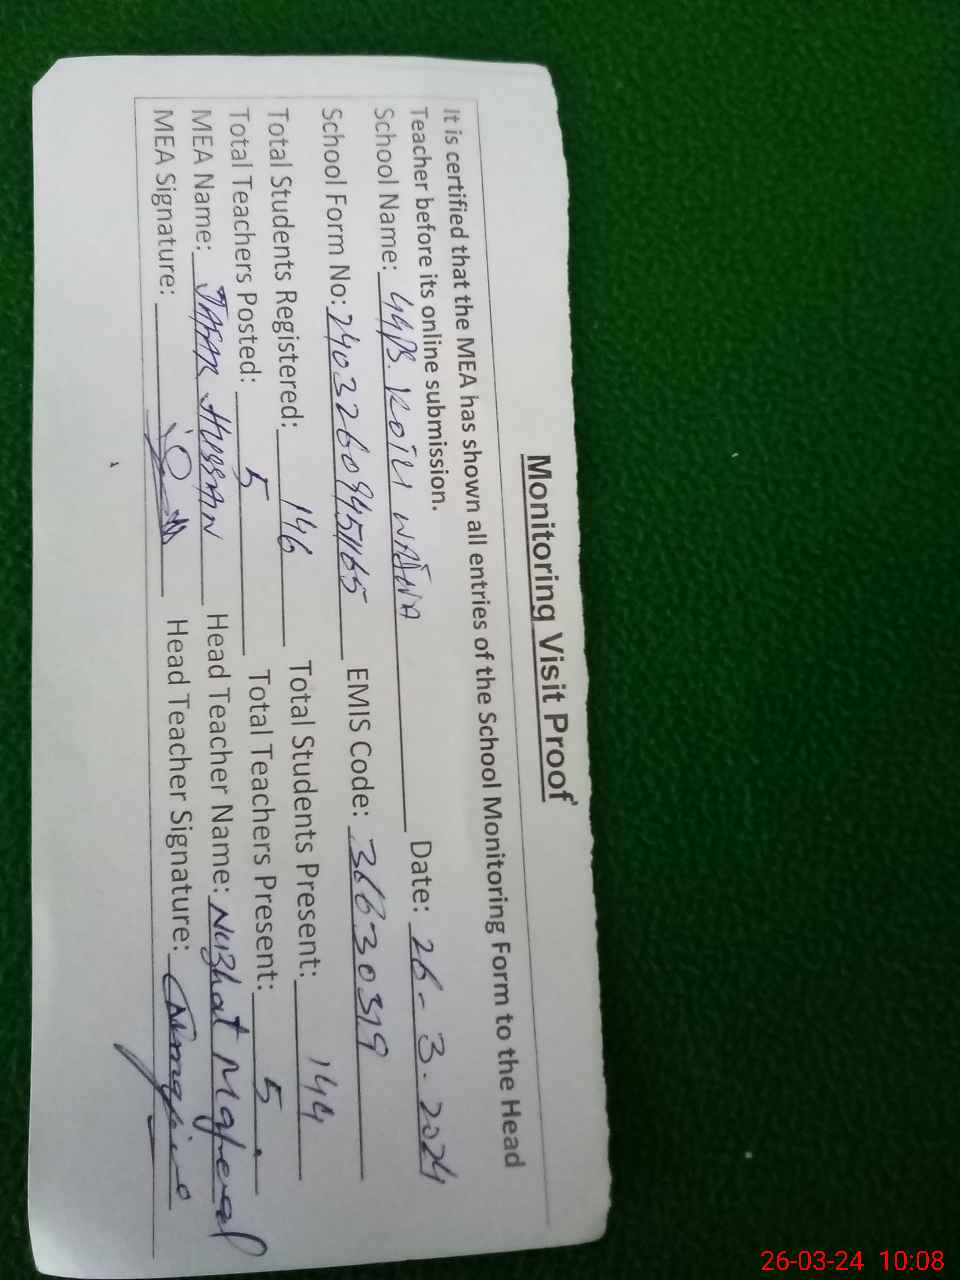 Monitoring Visit Proof
It is certified that the MEA has shown all entries of the School Monitoring Form to the Head
Teacher before its online submission.
School Name: GGPS. KOTLI WALA Date: 26-3-2024
School Form No: 2403260945165 EMIS Code: 36630319
Total Students Registered: 146 Total Students Present: 144
Total Teachers Posted: 5 Total Teachers Present: 5
MEA Name: HUSSAIN Head Teacher Name: Nuzhat
MEA Signature: Head Teacher Signature:
26-03-24 10:08